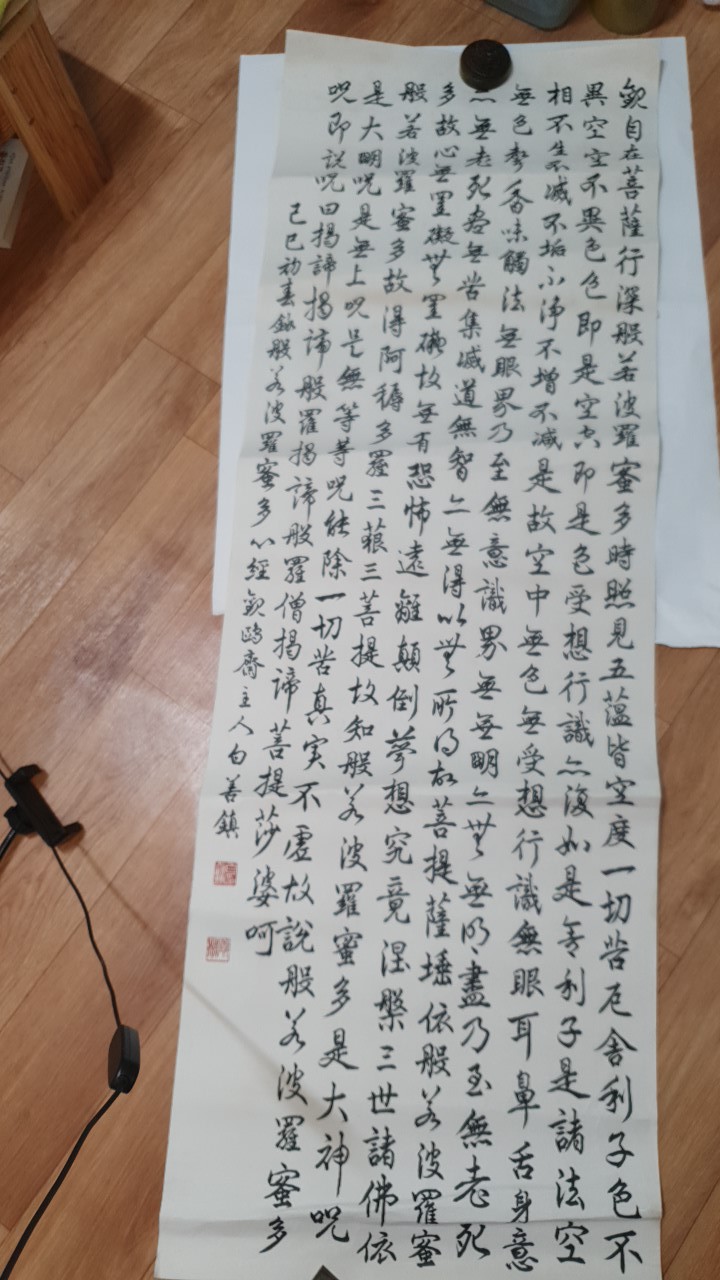 觀自在菩薩行深般若波羅蜜多時照見五蘊皆空度一切苦厄舍利子色不
異空空不異色色即是空空即是色受想行識亦復如是舍利子是諸法空
相不生不滅不垢不淨不增不減是故空中無色無受想行識無眼耳鼻舌身意
無色聲香味觸法無眼界乃至無意識界無無明亦無無明盡乃至無老死
亦無老死盡無苦集滅道無智亦無得以無所得故菩提薩埵依般若波羅蜜
多故心無罣礙無罣礙故無有恐怖遠離顛倒夢想究竟涅槃三世諸佛依
般若波羅蜜多故得阿耨多羅三藐三菩提故知般若波羅蜜多是大神呪
是大明呪是無上呪是無等等呪能除一切苦真实不虛故說般若波羅蜜多
呪即說呪曰揭諦揭諦般羅揭諦般羅僧揭諦菩提莎婆呵
己巳初春錄般若波羅蜜多心經觀鷗齋主人白善鎮